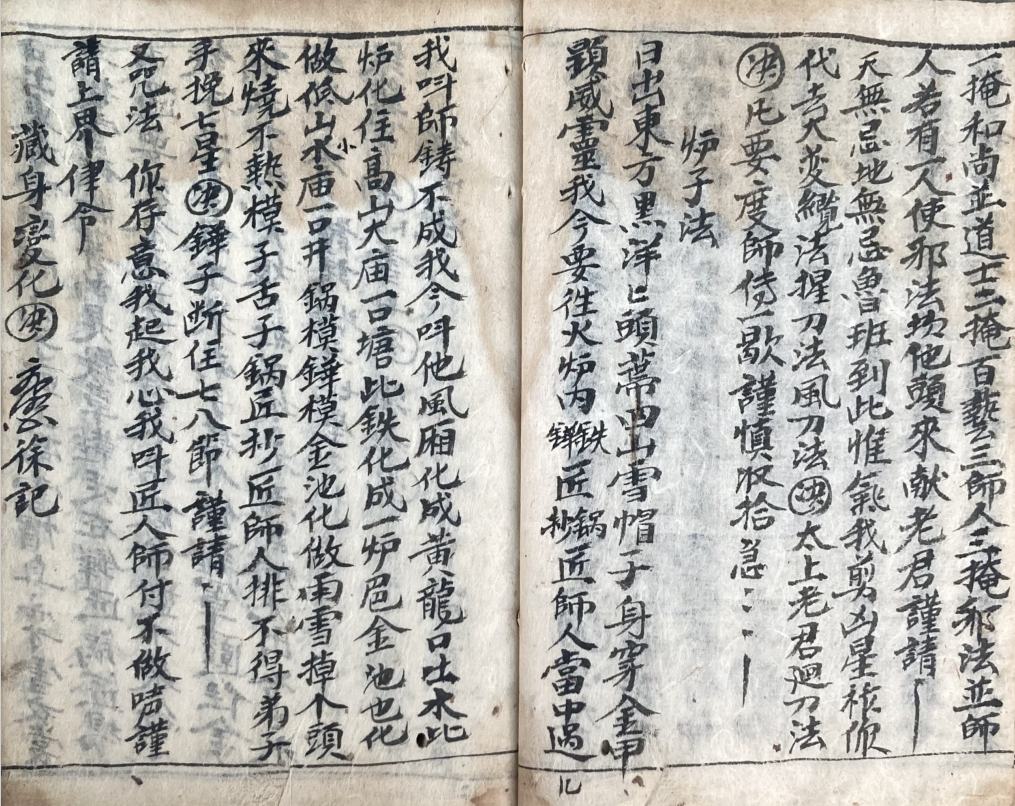 一掩和尚並道士二掩百藝三師人三掩邪法並師
人若有一人使邪法坊他頭來献老君謹請
天無忌地無忌魯班到此惟氣我剪凶星祚你
代去大变纜法猩刀法風刀法決太上老君廻刀法
決凡要度師侍一歇謹慎收拾急
炉子法
日出東方黑洋七頭帶四山雪帽子身穿金甲
顕威靈我今要徃火炉内鉄鏵匠鍋抄匠師人當中過
我呌師鋳不成我今呌他風厢化成黄龍口吐水此
炉化住高山大庙一口塘此鉄化成一炉巴金池也化
做低山小水庙一口井鍋模鏵模金池化做雨雪掉个頭
來燒不熱模子舌子鍋匠抄匠師人排不得弟子
手挽七星決鏵子断住七八節謹請
又咒法 你存意我起我心我呌匠人師付不做唝謹
請上界律令
藏身变化決 徐記